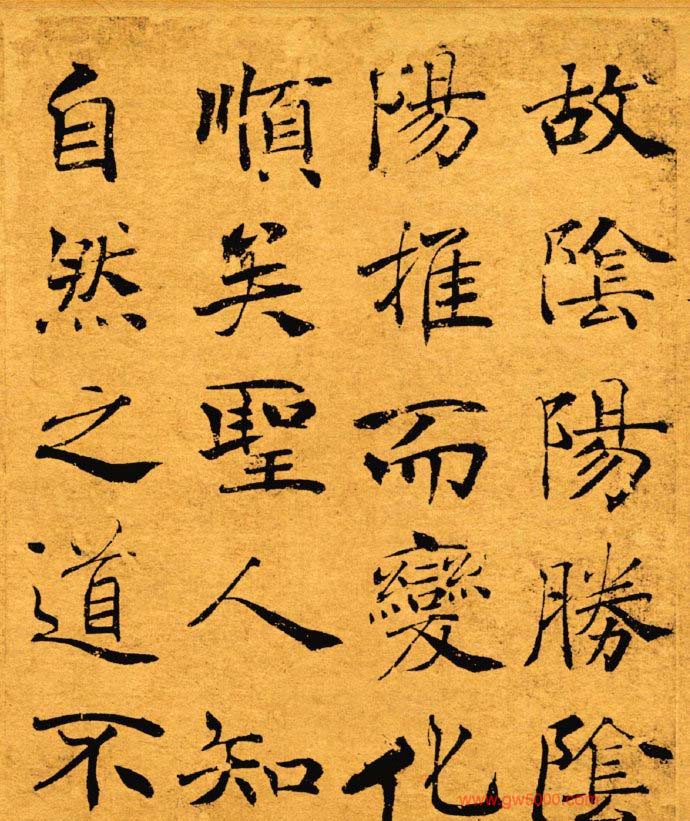 故陰陽勝陰
陽推而變化
順矣聖人知
自然之道不
www.gw5000.com